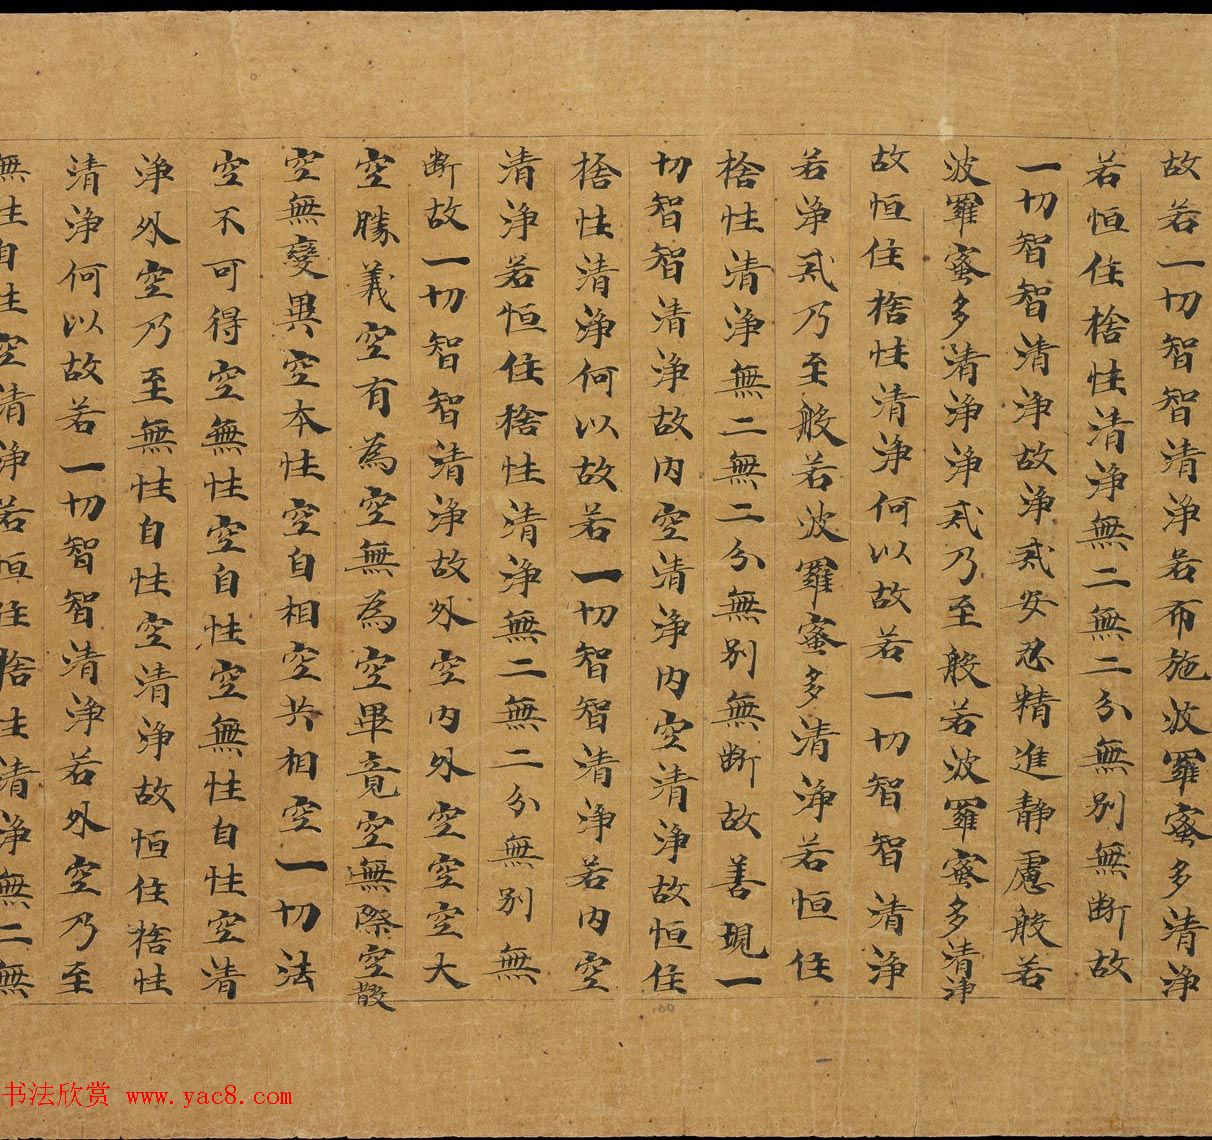 故若一切智智清浄若布施波羅蜜多清浄
若恒住捨性清浄無二無二分無别無断故
一切智智清浄故浄戒安忍精進静慮般若
波羅蜜多清浄浄戒乃至般若波羅蜜多清浄
故恒住捨性清浄何以故若一切智智清浄
若浄戒乃至般若波羅蜜多清浄若恒住
捨性清浄無二無二分無别無断故善現一
切智智清浄故内空清浄内空清浄故恒住
捨性清浄何以故若一切智智清浄若内空
清浄若恒住捨性清浄無二無二分無别無
断故一切智智清浄故外空内外空空空大
空勝義空有為空無為空畢竟空無際空散
空無變異空本性空自相空共相空一切法
空不可得空無性空自性空無性自性空清
浄外空乃至無性自性空清浄故恒住捨性
清浄何以故若一切智智清浄若外空乃至
無性自性空清浄若恒住捨性清浄無二無
书法欣赏 www.yac8.com